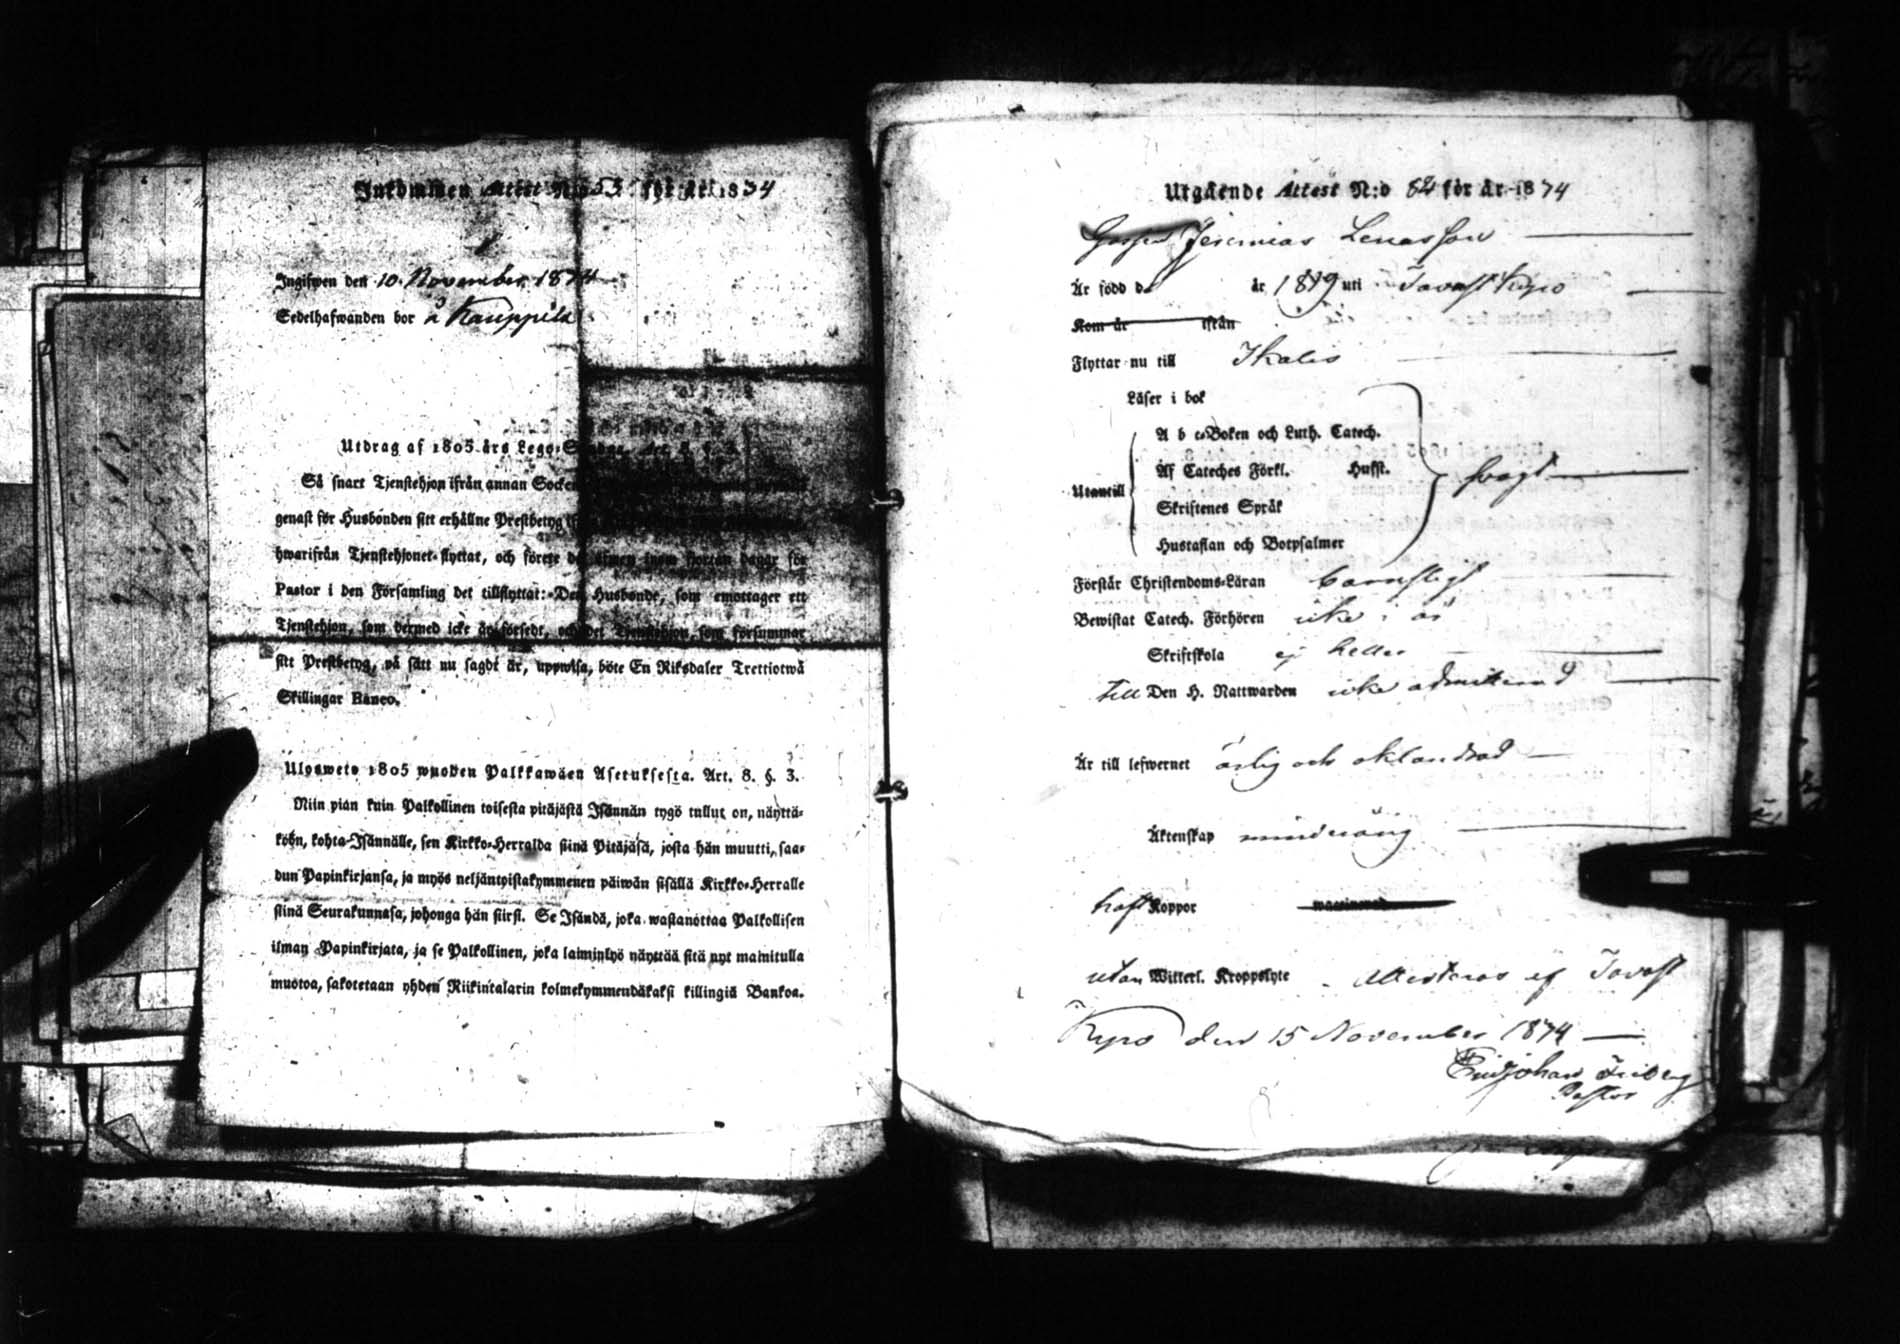 Inkommen Attest N:o 53 för år 1834
Ingifwen den 10 November 1874
Sedelhafwanden bor å Kauppila
Utdrag af 1805 års Lego-Stadga, Art. 8. §. 3.
Så snart Tjenstehjon ifrån annan Socken
genast för Husbonden sitt erhållne Prestbetyg
hwarifrån Tjenstehjonet flyttat, och förete det äfwen inom fjorton dagar för
Pastor i den Församling det tillflyttat: Den Husbonde, som emottager ett
Tjenstehjon, som dermed icke är försedt, och det Tjenstehjon, som försummar
sitt Prestbetyg, på sätt nu sagdt är, uppwisa, böte En Riksdaler Trettiotwå
Skillingar Banco.
Ulosweto 1805 wuoden Palkkawäen Asetuksesta. Art. 8. §. 3.
Niin pian kuin Palkollinen toisesta pitäjästä Isännän tygö tullut on, näyttä-
köön, kohta Isännälle, sen Kirkko-Herralda siinä Pitäjäsä, josta hän muutti, saa-
dun Papinkirjansa, ja myös neljäntoistakymmenen päiwän sisällä Kirkko-Herralle
siinä Seurakunnasa, johonga hän siirsi. Se Isändä, joka wastanottaa Palkollisen
ilman Papinkirjata, ja se Palkollinen, joka laiminlyö näyttää sitä nyt mainitulla
muotoa, sakotetaan yhden Riikintalarin kolmekymmendäkaksi killingiä Bankoa.
Utgående Attest N:o 82 för år 1874
Gossen Jeremias Lenasson
Är född d. år 1819 uti Tavast Kyro
Kom år ifrån
Flyttar nu till Ikalis
Läser i bok
A b c-Boken och Luth. Catech.
Af Cateches Förkl. Hufst.
Utantill svagt
Skriftenes Språk
Hustaflan och Botpsalmer
Förstår Christendoms-Läran barnsligt
Bewistat Catech. Förhören icke i år
Skriftskola ej heller
till Den H. Nattwarden icke admitterad
Är till lefwernet ärlig och oklandrad
Äktenskap minderårig
haft Koppor vaccinerad
utan Witterl. Kroppslyte. Attesteras af Tavast
Kyro den 15 November 1874
Johan Friberg
Pastor